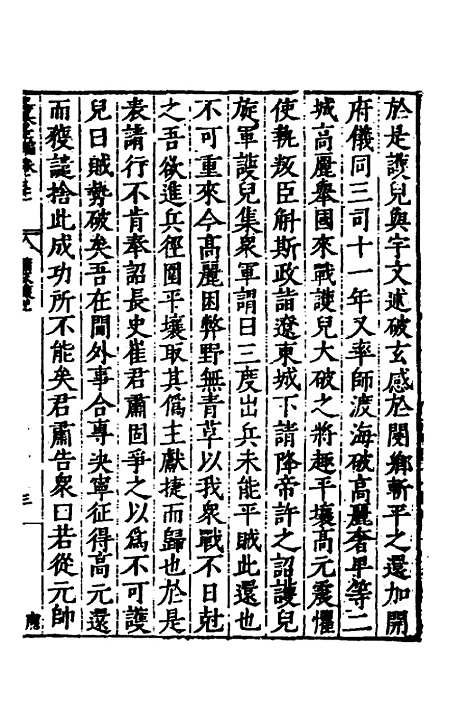 於是護兒與宇文述破玄感於閿鄉斬平之還加開
府儀同三司十一年又率師渡海破高麗奢卑等二
城高麗舉國來戰護兒大破之將趣平壤高元震懼
使執叛臣斛斯政詣遼東城下請降帝許之詔護兒
旋軍護兒集衆軍謂曰三度出兵未能平賊此還也
不可重來今高麗困弊野無青草以我衆戰不日尅
之吾欲進兵徑圍平壤取其僞主獻捷而歸也於是
表請行不肯奉詔長史崔君肅固爭之以爲不可護
兒曰賊勢破矣吾在閫外事合專決寧征得高元還
而獲譴捨此成功所不能矣君肅告衆曰若從元帥
三